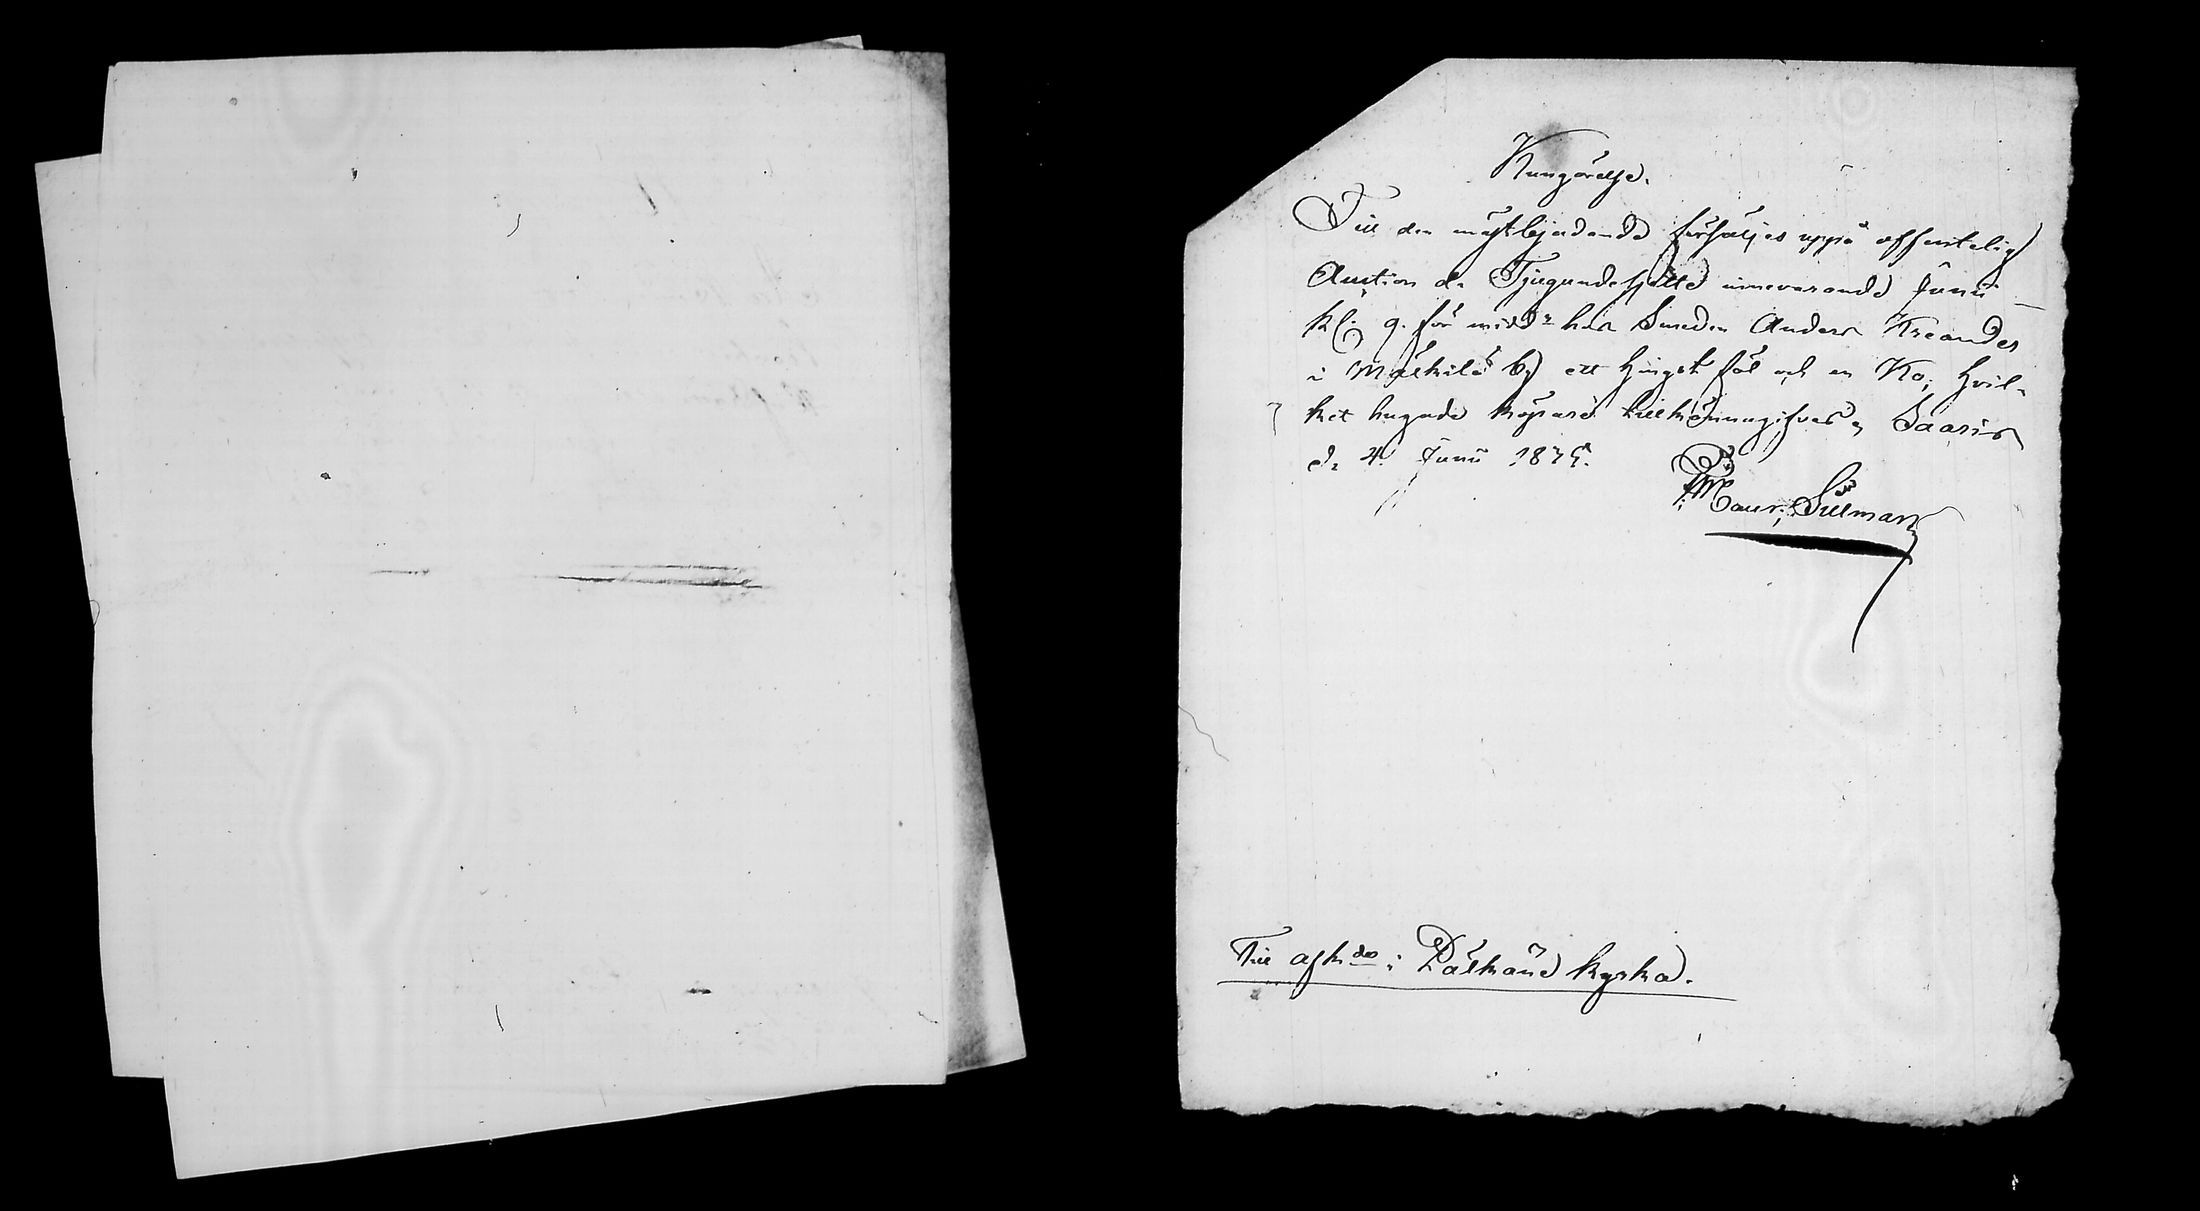 Kungörelse.
Till den mästbjudande försäljes uppå offentelig
Auction dn Tjugundesjätte innevarande Junii
kl. 9. för midd: hos Smeden Anders Kreander
i Mälkilä by ett hingst föl och en Ko, hvil-
ket hugade köpare tillkännagifves, Saaris
dn 4. Junii 187
Sillman
Till afkdo i Pälkäne kyrka.